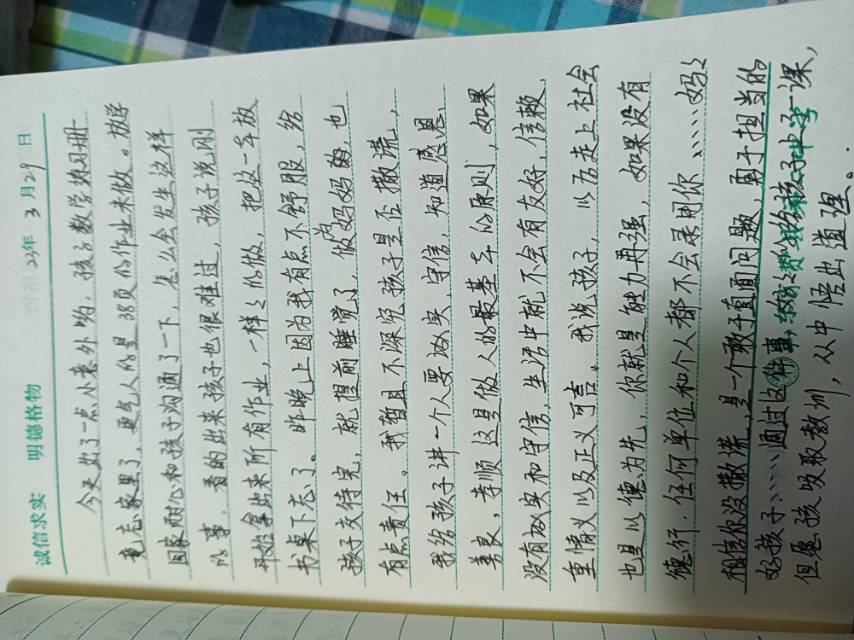 诚信求实 明德格物
23年 3月29日
今天出了一点小意外哟,孩子数学练习册
竟忘家里了,更气人的是38页的作业未做。放学
回家耐心和孩子沟通了一下,怎么会发生这样
的事,看的出来孩子也很难过,孩子说刚
开始拿出来所有作业,一样々的做,把这一本放
书桌下忘了。昨晚上因为我有点不舒服,给
孩子交待完,就提前睡觉了,做为妈妈的,也
有点责任。我暂且不深究孩子是否撒谎,
我给孩子讲一个人要诚实、守信,知道感恩,
善良,孝顺这是做人的最基本的原则,如果
没有诚实和守信,生活中就不会有友好,信赖,
重情义以及正义可言。我说孩子,以后走上社会
也是以德为先,你就是能力再强,如果没有
德行,任何单位和个人都不会录用你、……妈々
相信你没撒谎,是一个敢于直面问题,勇于担当的
好孩子……通过这件事,给孩子上了一课,
但愿孩吸取教训,从中悟出道理。